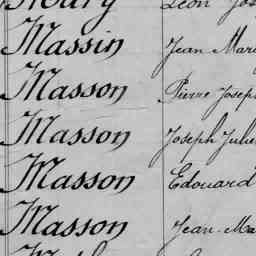 Massin Jean Mari
Masson Pierre Joseph
Masson Joseph Julie
Masson Edouard
Masson Jean-Ma